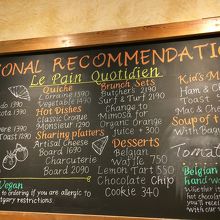 SONAL RECOMMENDATION
Le Pain Quotidien
Quiche
Lorraine 1590
Vegetable 1490
Hot Dishes
Classic Croque
Monsieur 1290
Sharing platters
Artisan Cheese
Board 1690
Charcuterie
Board 2090
Brunch Sets
Butchers 2190
Surf & Turf 2190
Change to
Mimosa for
Organic Orange
juice +300
Desserts
Belgian
Waffle 750
Lemon Tart 550
Chocolate Chip
Cookie 340
Kid's
Ham & Ch
Toast
Mac and Ch
Soup of t
With Bag
Tomat
Belgian
hand
with w
Vegan
to ordering if you are allergic to
dietary restrictions.